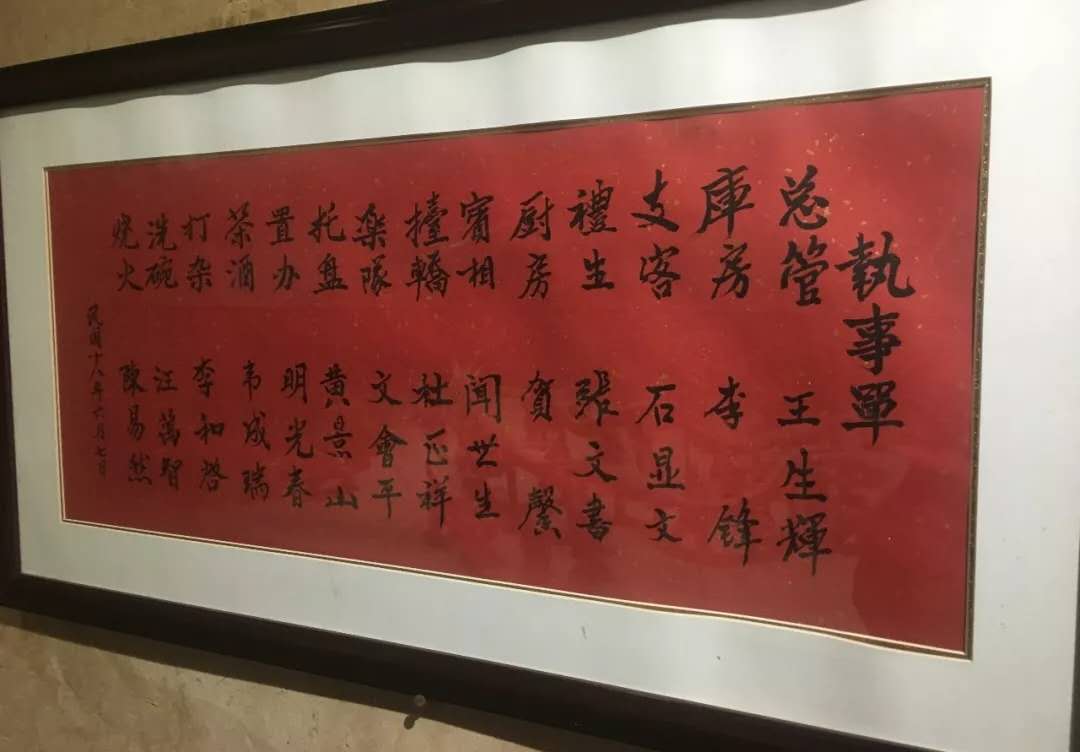 執事單
总管 王生輝
庫房 李鋒
支客 石显文
禮生 張文書
厨房 賀馨
賓相 闻世生
擡轎 杜正祥
樂隊 文會平
托盘 黄景山
置办 明光春
茶酒 韦成瑞
打杂 李和啓
洗碗 汪萬智
烧火 陳易然
民国十八年六月七日